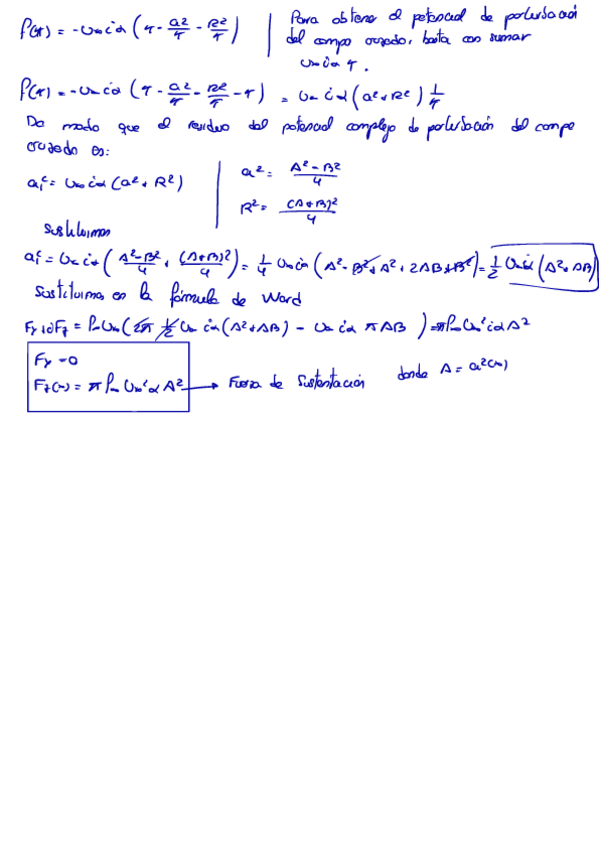 f(τ) = -U∞ iα (τ - a²/τ - R²/τ) | Para obtener el potencial de perturbación
del campo cruzado, basta con sumar
U∞ iα τ.
f(τ) = -U∞ iα (τ - a²/τ - R²/τ - τ) = U∞ iα (a² + R²) 1/τ
De modo que el residuo del potencial complejo de perturbación del campo
cruzado es:
a₁ᶜ = U∞ iα (a² + R²) | a² = (A² - B²)/4
R² = (A+B)²/4
Sustituimos
a₁ᶜ = U∞ iα ((A² - B²)/4 + (A+B)²/4) = 1/4 U∞ iα (A² - B² + A² + 2AB + B²) = 1/2 U∞ iα (A² + AB)
Sustituimos en la fórmula de Ward
Fy + iFz = ρ∞ U∞ (2π 1/2 U∞ iα (A² + AB) - U∞ iα π AB) = πρ∞ U∞² iα A²
Fy = 0
Fz(x) = π ρ∞ U∞² α A² → Fuerza de Sustentación donde A = a²(x)